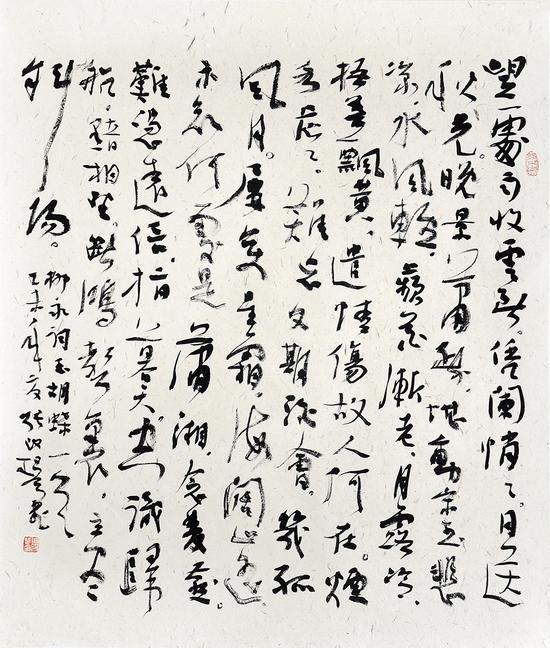 望處雨收雲斷。凭闌悄悄。目送
秋光。晚景蕭疏。堪動宋玉悲
涼。水風輕。蘋花漸老。月露冷。
梧葉飄黃。遣情傷故人何在。煙
水茫茫。難忘文期酒會。幾孤
風月。屢變星霜。海闊山遙
未知何處是瀟湘。念雙燕。
難憑遠信。指暮天空識歸
航。黯相望。斷鴻聲裏。立盡
斜陽。
柳永詞玉胡蝶一首
乙未年夏張改琴書